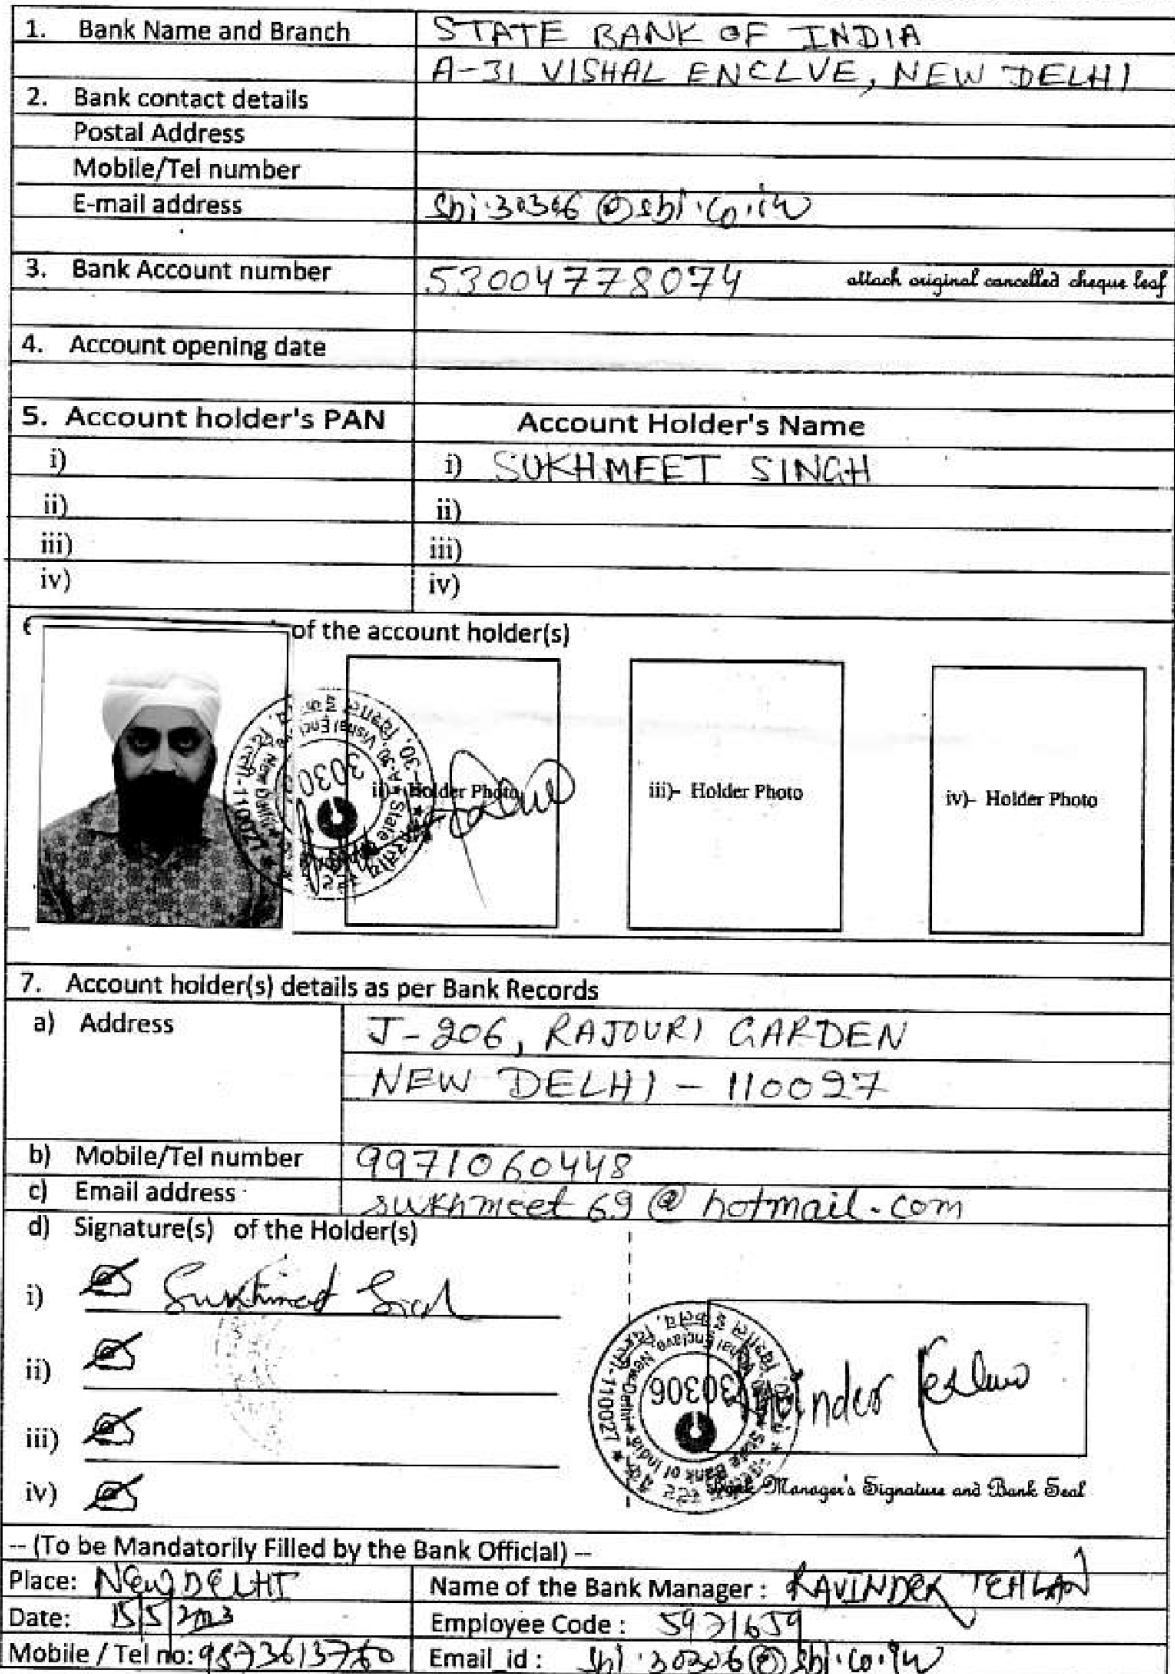 1. Bank Name and Branch STATE BANK OF INDIA
A-31 VISHAL ENCLVE, NEW DELHI
2. Bank contact details
Postal Address
Mobile/Tel number
E-mail address sbi.30306@sbi.co.in
3. Bank Account number 53004778074 attach original cancelled cheque leaf
4. Account opening date
5. Account holder's PAN Account Holder's Name
i) i) SUKHMEET SINGH
ii) ii)
iii) iii)
iv) iv)
of the account holder(s)
ii)- Holder Photo iii)- Holder Photo iv)- Holder Photo
7. Account holder(s) details as per Bank Records
a) Address J-206, RAJOURI GARDEN
NEW DELHI - 110027
b) Mobile/Tel number 9971060448
c) Email address sukhmeet69@hotmail.com
d) Signature(s) of the Holder(s)
i) Sukhmeet
ii)
iii)
iv)
30306
Bank Manager's Signature and Bank Seal
-- (To be Mandatorily Filled by the Bank Official) --
Place: NEW DELHI Name of the Bank Manager : RAVINDER TEHLAN
Date: 15/5/2023 Employee Code : 5971659
Mobile / Tel no: 9873613760 Email_id : sbi.30306@sbi.co.in